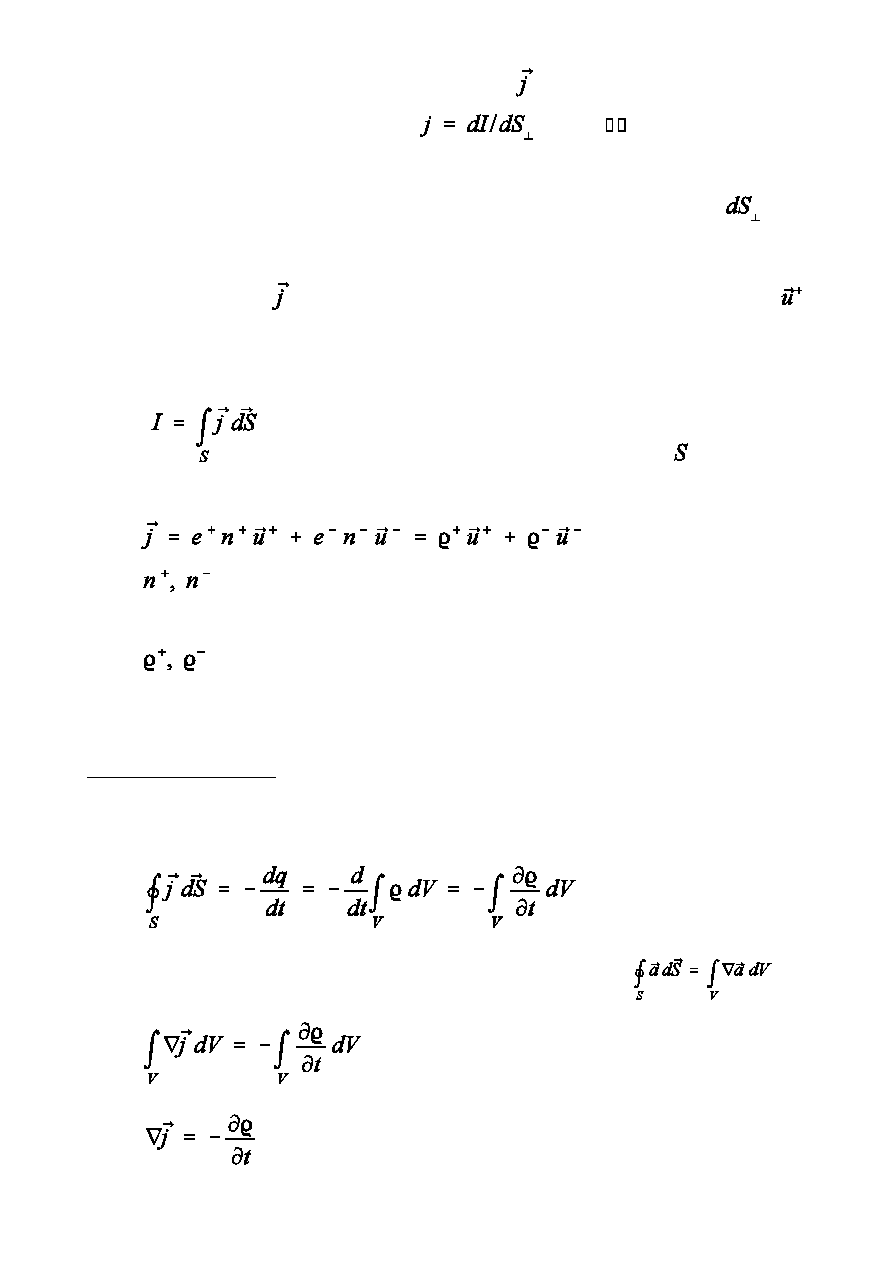 j⃗
j = dI/dS⊥ ▯▯
dS⊥
j⃗ u⃗⁺
I = ∫_S j⃗ dS⃗
S
j⃗ = e⁺n⁺u⃗⁺ + e⁻n⁻u⃗⁻ = ϱ⁺u⃗⁺ + ϱ⁻u⃗⁻
n⁺, n⁻
ϱ⁺, ϱ⁻
∮_S j⃗ dS⃗ = −dq/dt = −d/dt ∫_V ϱ dV = −∫_V ∂ϱ/∂t dV
∮_S a⃗ dS⃗ = ∫_V ∇a⃗ dV
∫_V ∇j⃗ dV = −∫_V ∂ϱ/∂t dV
∇j⃗ = −∂ϱ/∂t